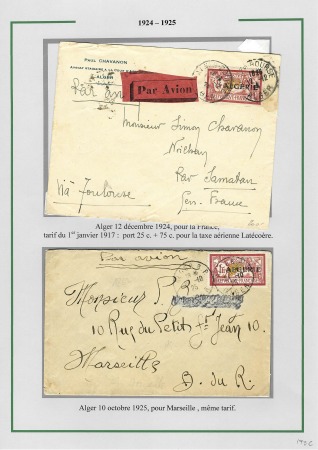 1924 - 1925
PAUL CHAVANON
ALGER
Par avion
Par Avion
ALGERIE
Monsieur Simon Chavanon
Par Samatan
Gers. France
Via Toulouse
Alger 12 décembre 1924, pour la France,
tarif du 1er janvier 1917 : port 25 c. + 75 c. pour la taxe aérienne Latécoère.
Par avion
ALGERIE
Monsieur P.
10 Rue du Petit St Jean 10.
Marseille
B. du R.
Alger 10 octobre 1925, pour Marseille , même tarif.